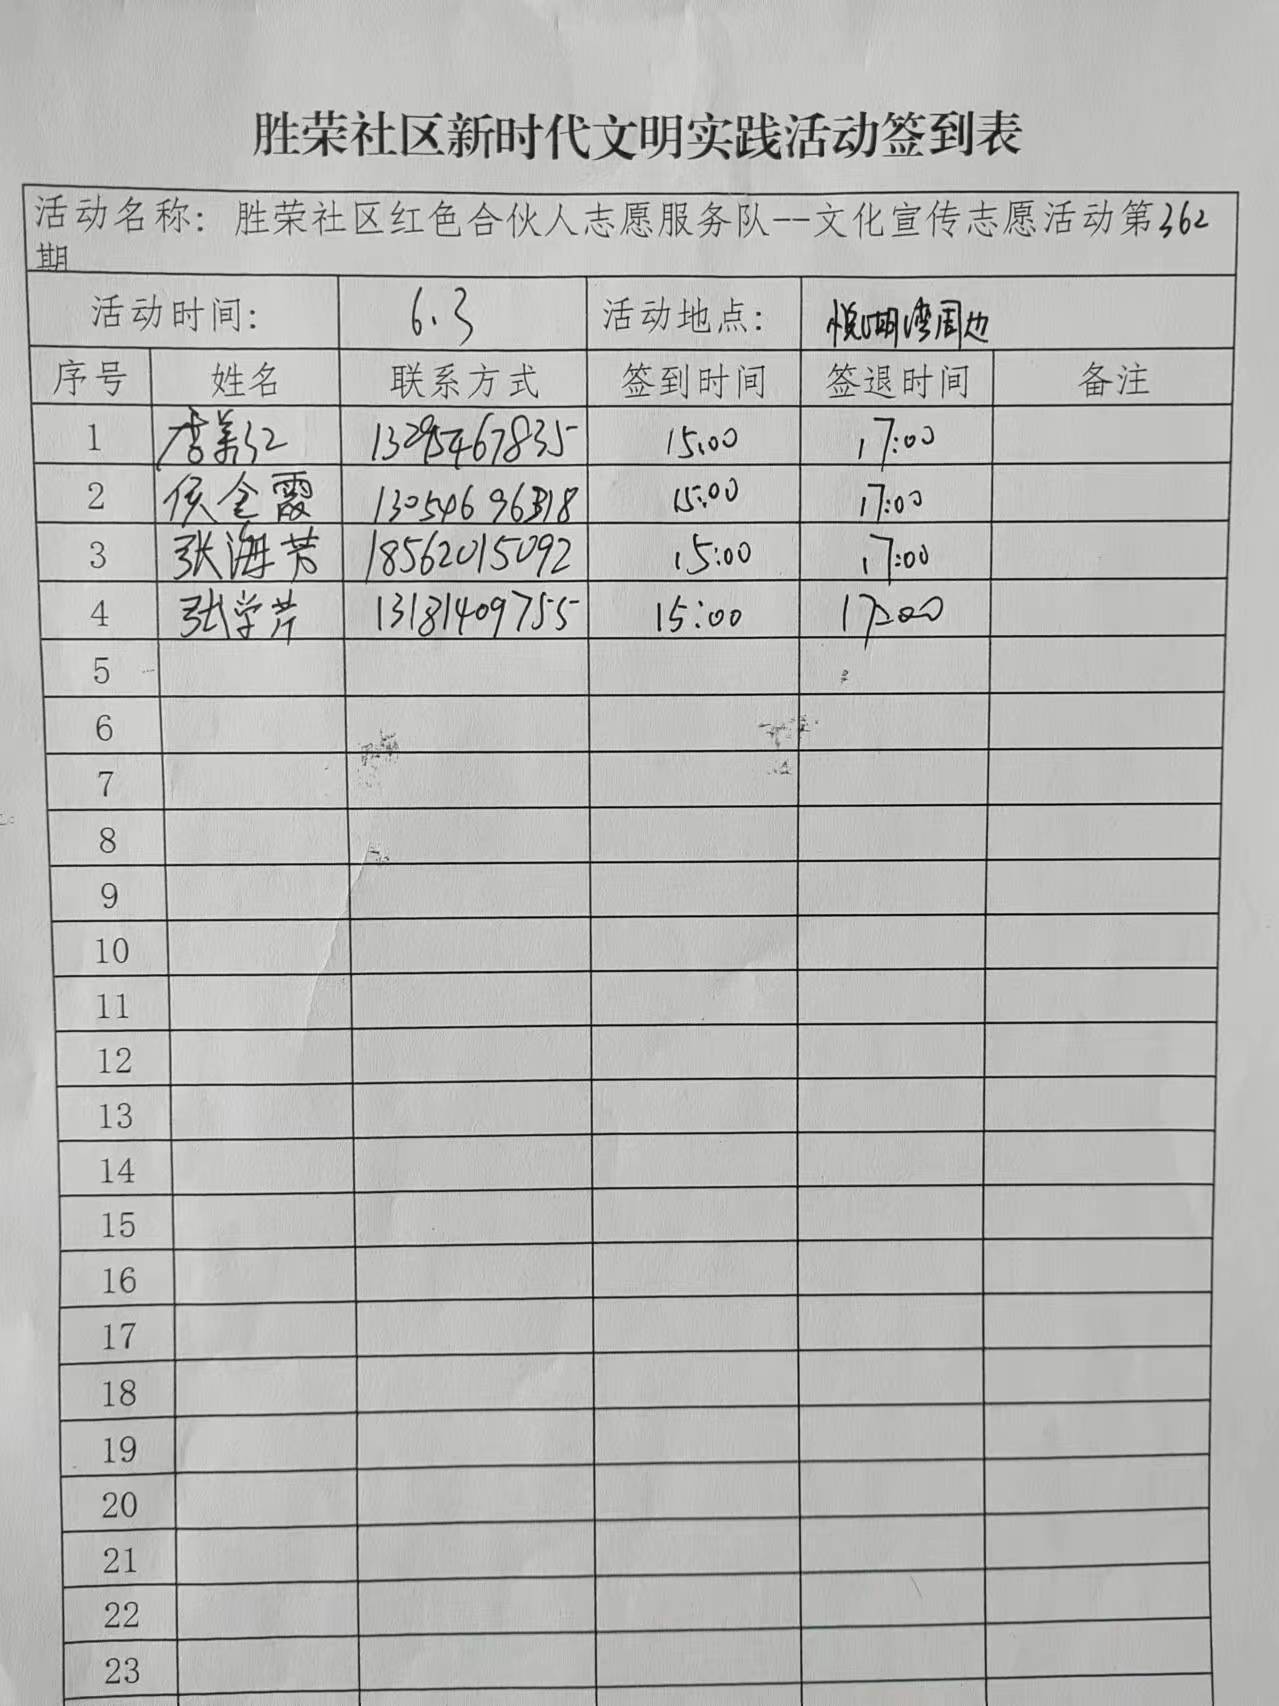 胜荣社区新时代文明实践活动签到表
活动名称：胜荣社区红色合伙人志愿服务队--文化宣传志愿活动第362
期
活动时间： 6.3 活动地点： 悦湖湾周边
序号 姓名 联系方式 签到时间 签退时间 备注
1 李美红 13295467835 15:00 17:00
2 侯全霞 13054696318 15:00 17:00
3 张海芳 18562015092 15:00 17:00
4 张学芹 13181409755 15:00 17:00
5
6
7
8
9
10
11
12
13
14
15
16
17
18
19
20
21
22
23